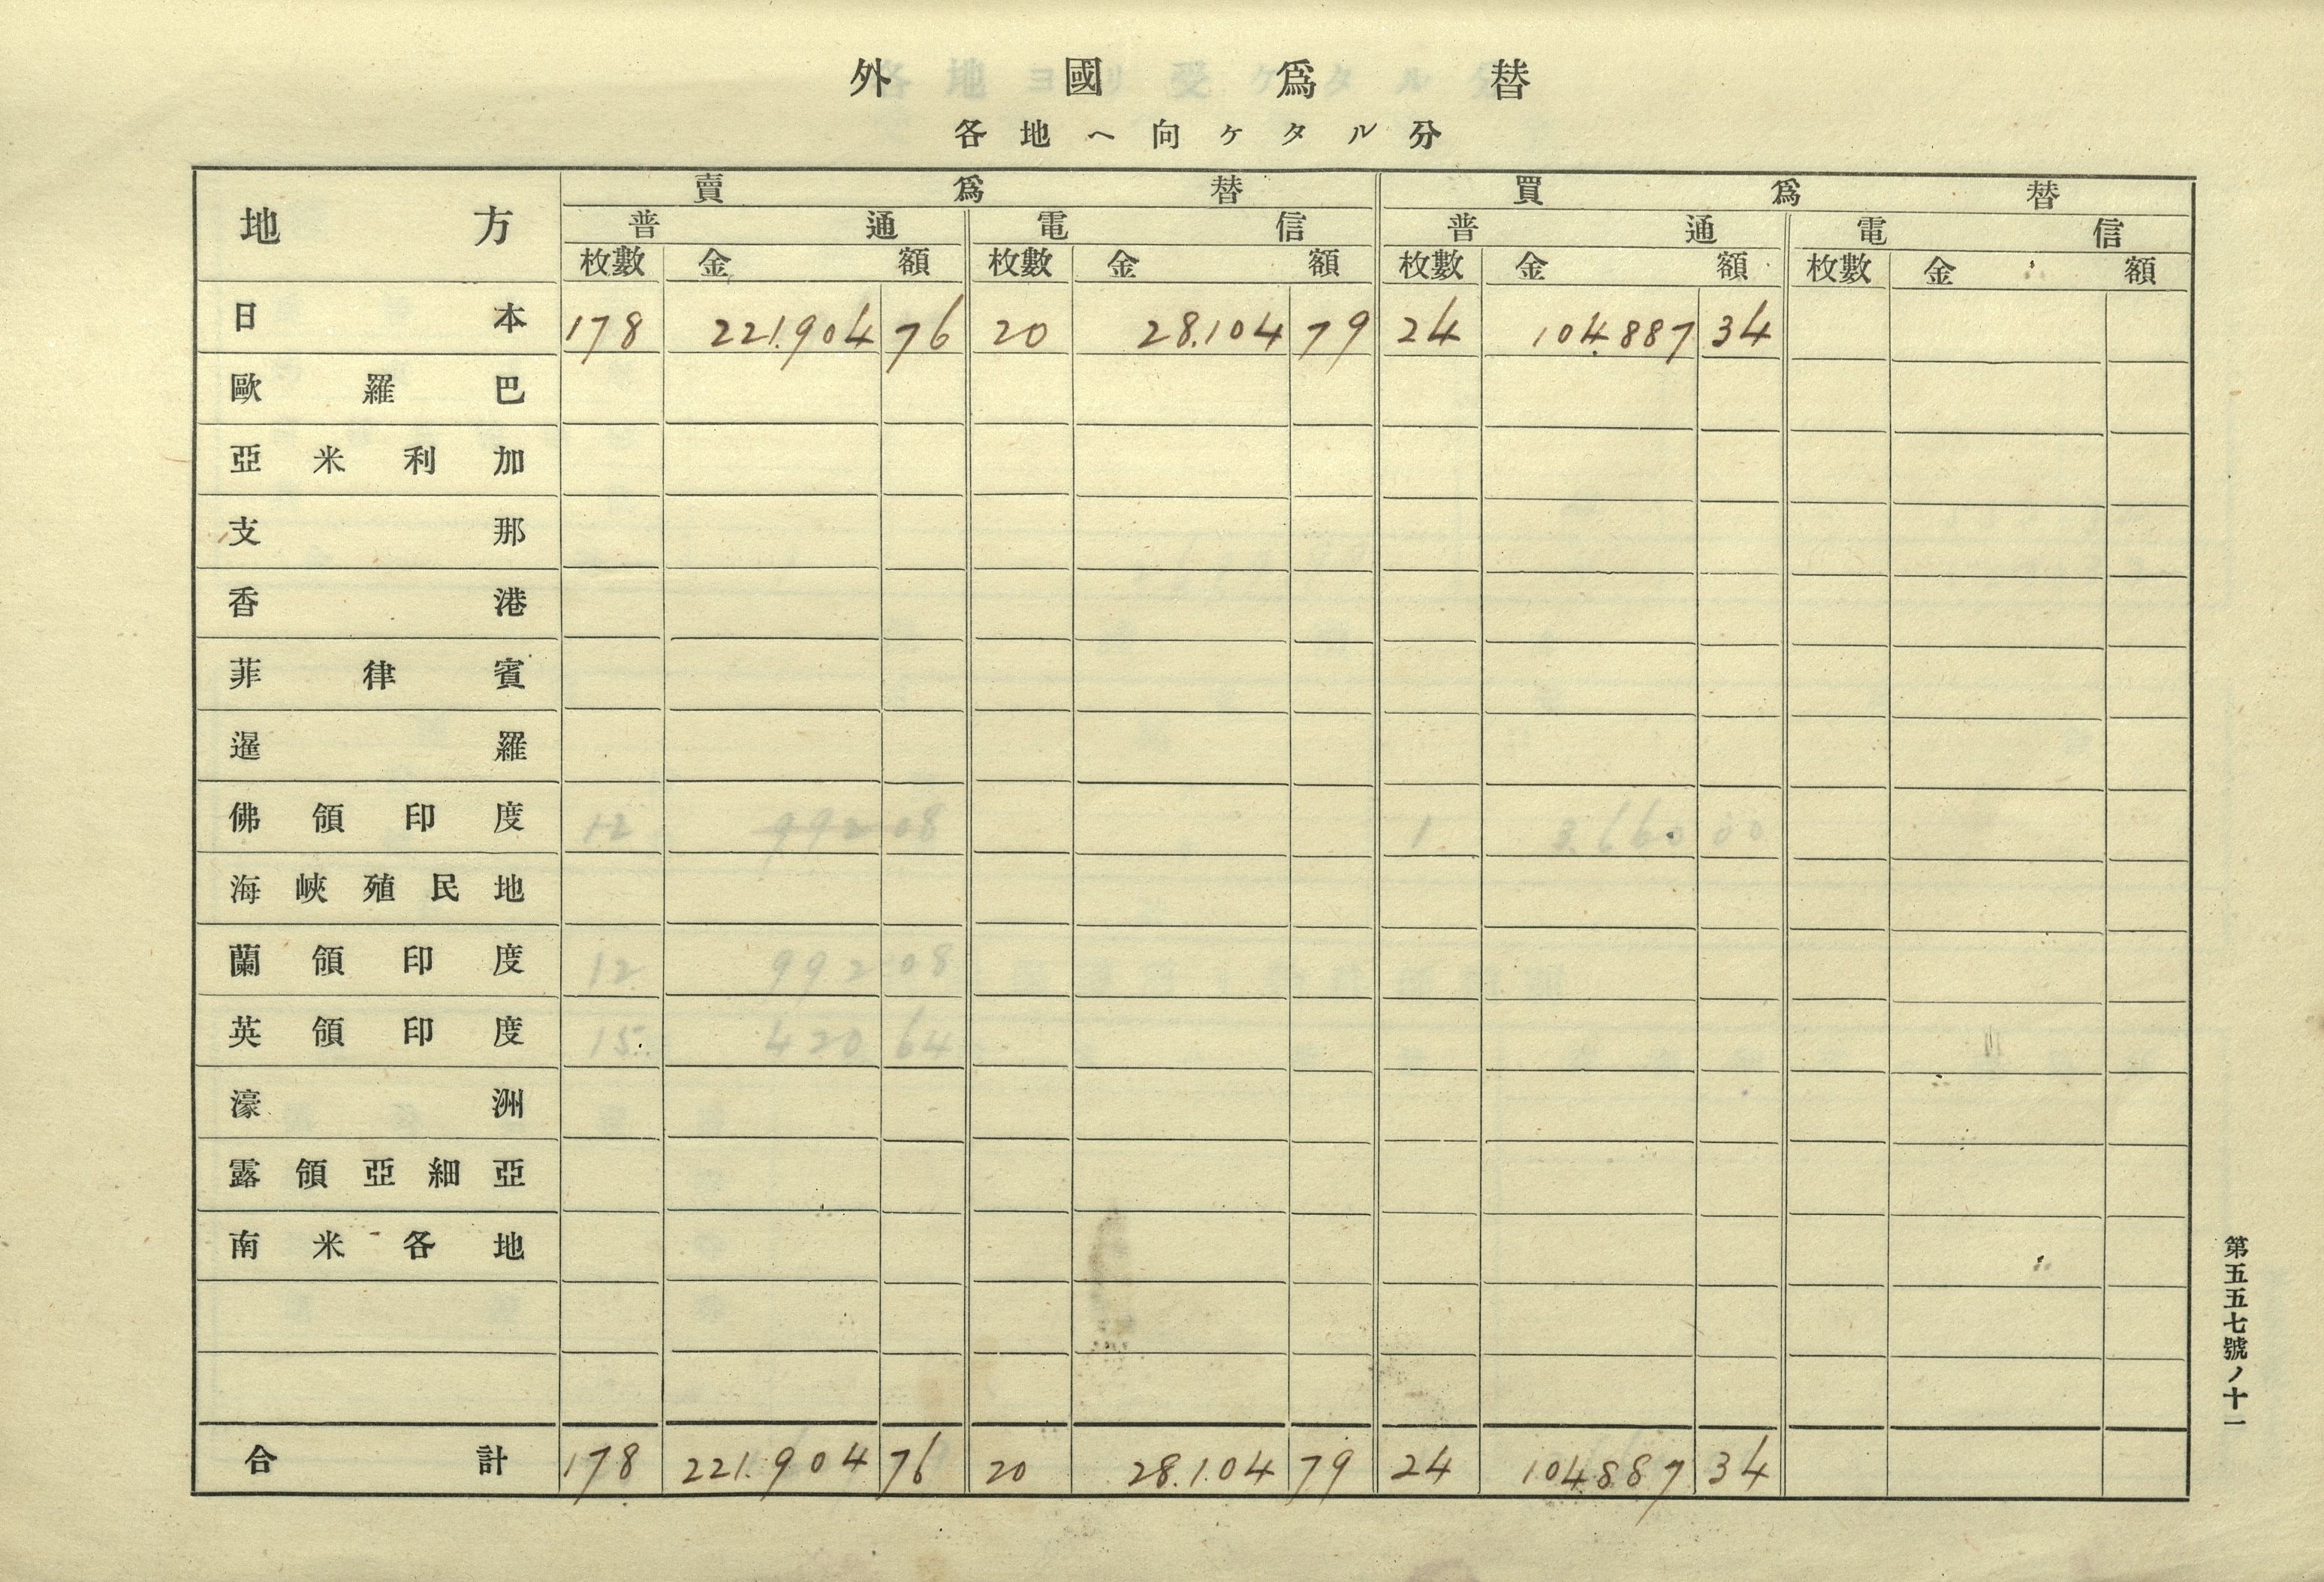 外國爲替
各地ヘ向ケタル分
地方 賣爲替 買爲替
普通 電信 普通 電信
枚數 金額 枚數 金額 枚數 金額 枚數 金額
日本 178 221.904 76 20 28.104 79 24 104.887 34
歐羅巴
亞米利加
支那
香港
菲律賓
暹羅
佛領印度 12 992 08 1 3.660 00
海峽殖民地
蘭領印度 12 992 08
英領印度 15 420 64
濠洲
露領亞細亞
南米各地
合計 178 221.904 76 20 28.104 79 24 104.887 34
第五五七號ノ十一